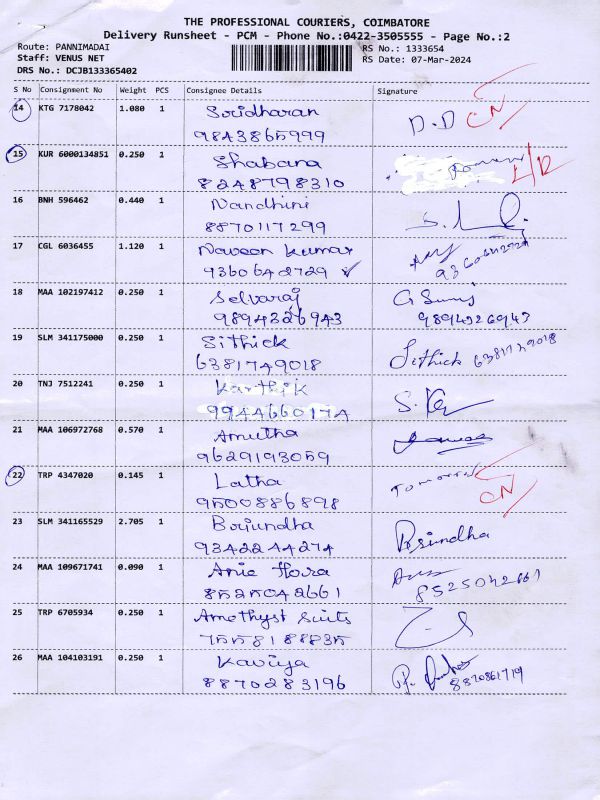 THE PROFESSIONAL COURIERS, COIMBATORE
Delivery Runsheet - PCM - Phone No.:0422-3505555 - Page No.:2
Route: PANNIMADAI RS No.: 1333654
Staff: VENUS NET RS Date: 07-Mar-2024
DRS No.: DCJB133365402
S No Consignment No Weight PCS Consignee Details Signature
14 KTG 7178042 1.080 1 Sridharan D.D
9843865999
15 KUR 6000134851 0.250 1 Shabana
8248798310
16 BNH 596462 0.440 1 Nandhini
8870117299
17 CGL 6036455 1.120 1 Naveen Kumar
9360642729 ✓ 9360642729
18 MAA 102197412 0.250 1 Selvaraj
9894326943
19 SLM 341175000 0.250 1 Sithick Sithick 6381749018
6381749018
20 TNJ 7512241 0.250 1 Karthik
9944660174
21 MAA 106972768 0.570 1 Amutha
9629193059
22 TRP 4347020 0.145 1 Latha
9500886898
23 SLM 341165529 2.705 1 Briundha Brindha
9342244274
24 MAA 109671741 0.090 1
8525042661 8525042661
25 TRP 6705934 0.250 1 Amethyst Suits
7558188835
26 MAA 104103191 0.250 1 Kaviya
8870283196